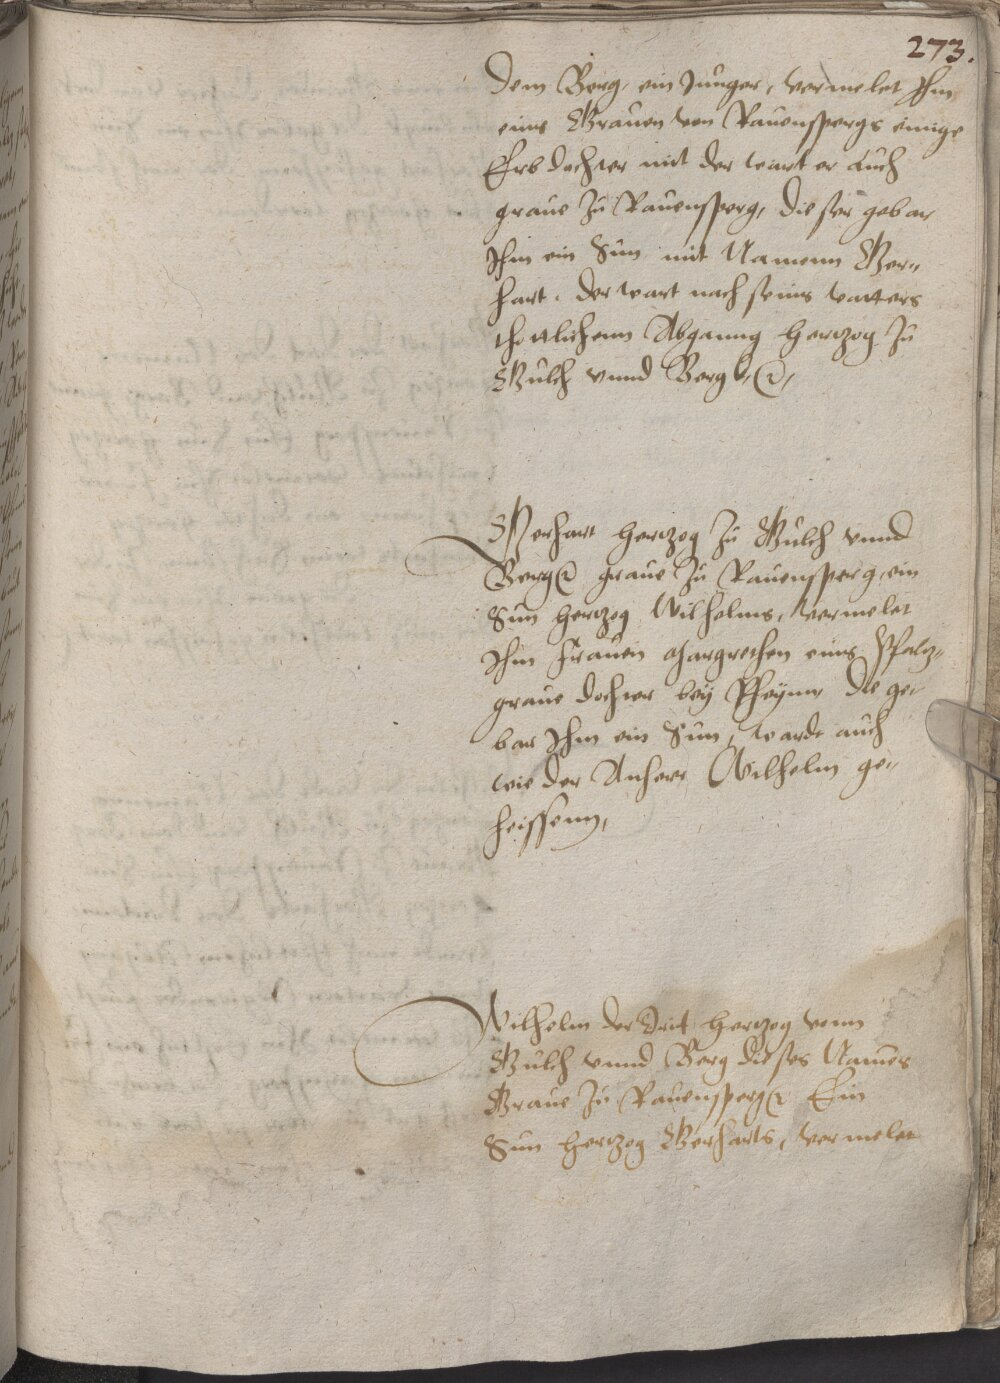 273.
dem Berg, ein Junger, vermelet Ihm
eins Grauen von Rauenspergs einige
Erbdochter mit der wart er auch
graue zu Rauensperg, die ser gebar
Ihm ein Sun mit Namenn Ger„
hart. der wart nach seins vatters
thottlichenn Abganng hertzog zu
Gülch vnnd Berg
Gerhart hertzog zu Gülch vnnd
Berg graue zu Rauensperg, ein
Sun hertzog Wilhelms, vermelet
Ihm frauen Margrethen eins Pfaltz„
graue dochter bey Rheynn, die ge„
bar Ihm ein Sun, wardt auch
wie der Anherr Wilhelm ge„
heissenn,
Wilhelm der drit hertzog vonn
Gülch vnnd Berg dieses Names
Graue zu Rauensperg Ein
Sun hertzog Gerharts, vermelet